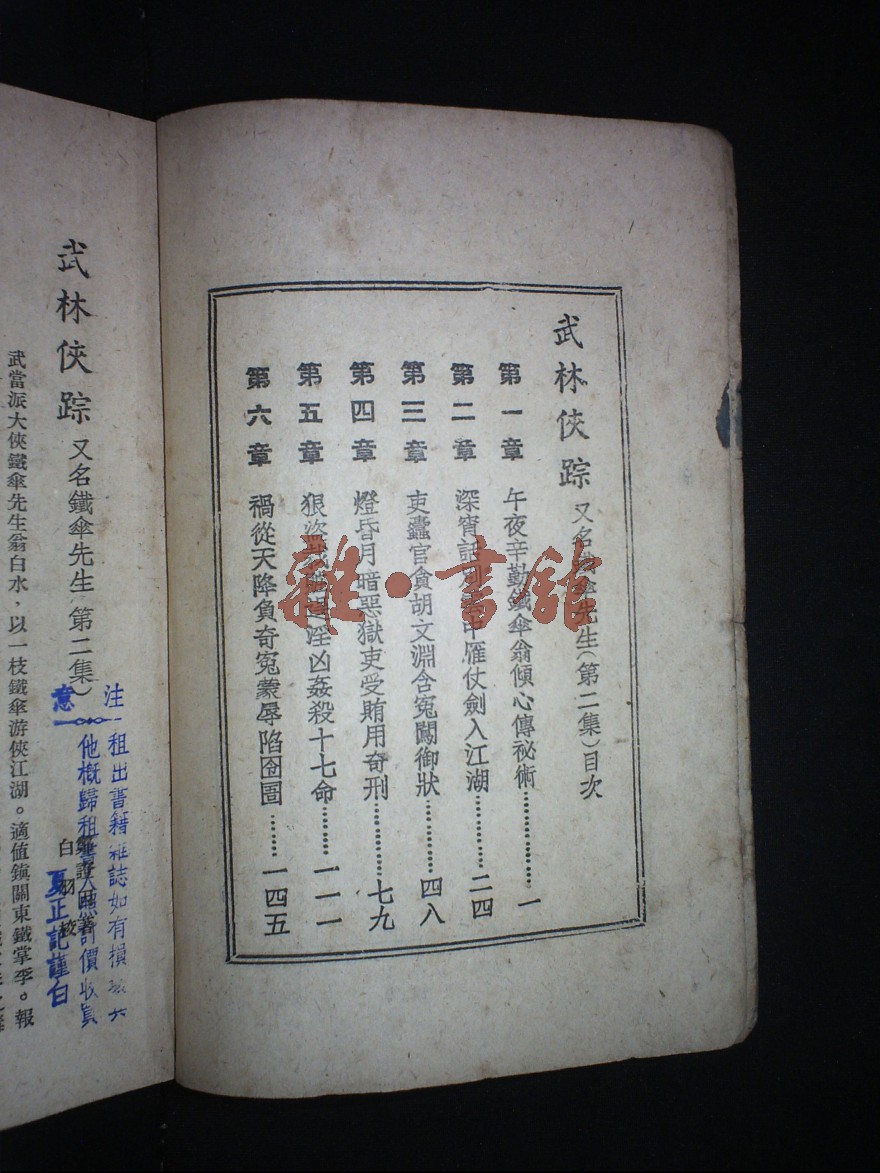 武林俠踪 又名鐵傘先生（第二集）目次
第一章 午夜辛勤鐵傘翁傾心傳祕術………………一
第二章 深宵話別 中雁仗劍入江湖…………二四
第三章 吏蠹官貪胡文淵含寃闖御狀…………四八
第四章 燈昏月暗惡獄吏受賄用奇刑…………七九
第五章 狠盜 淫凶姦殺十七命………一一一
第六章 禍從天降負奇寃蒙辱陷囹圄………一四五
雜·書館
武林俠踪 又名鐵傘先生 第二集）
鄭證因著
白羽校
注意
租出書籍雜誌如有損
他概歸租 人照計價收買
夏正記謹白
武當派大俠鐵傘先生翁白水，以一枝鐵傘游俠江湖。適值鎮關東鐵掌季。報